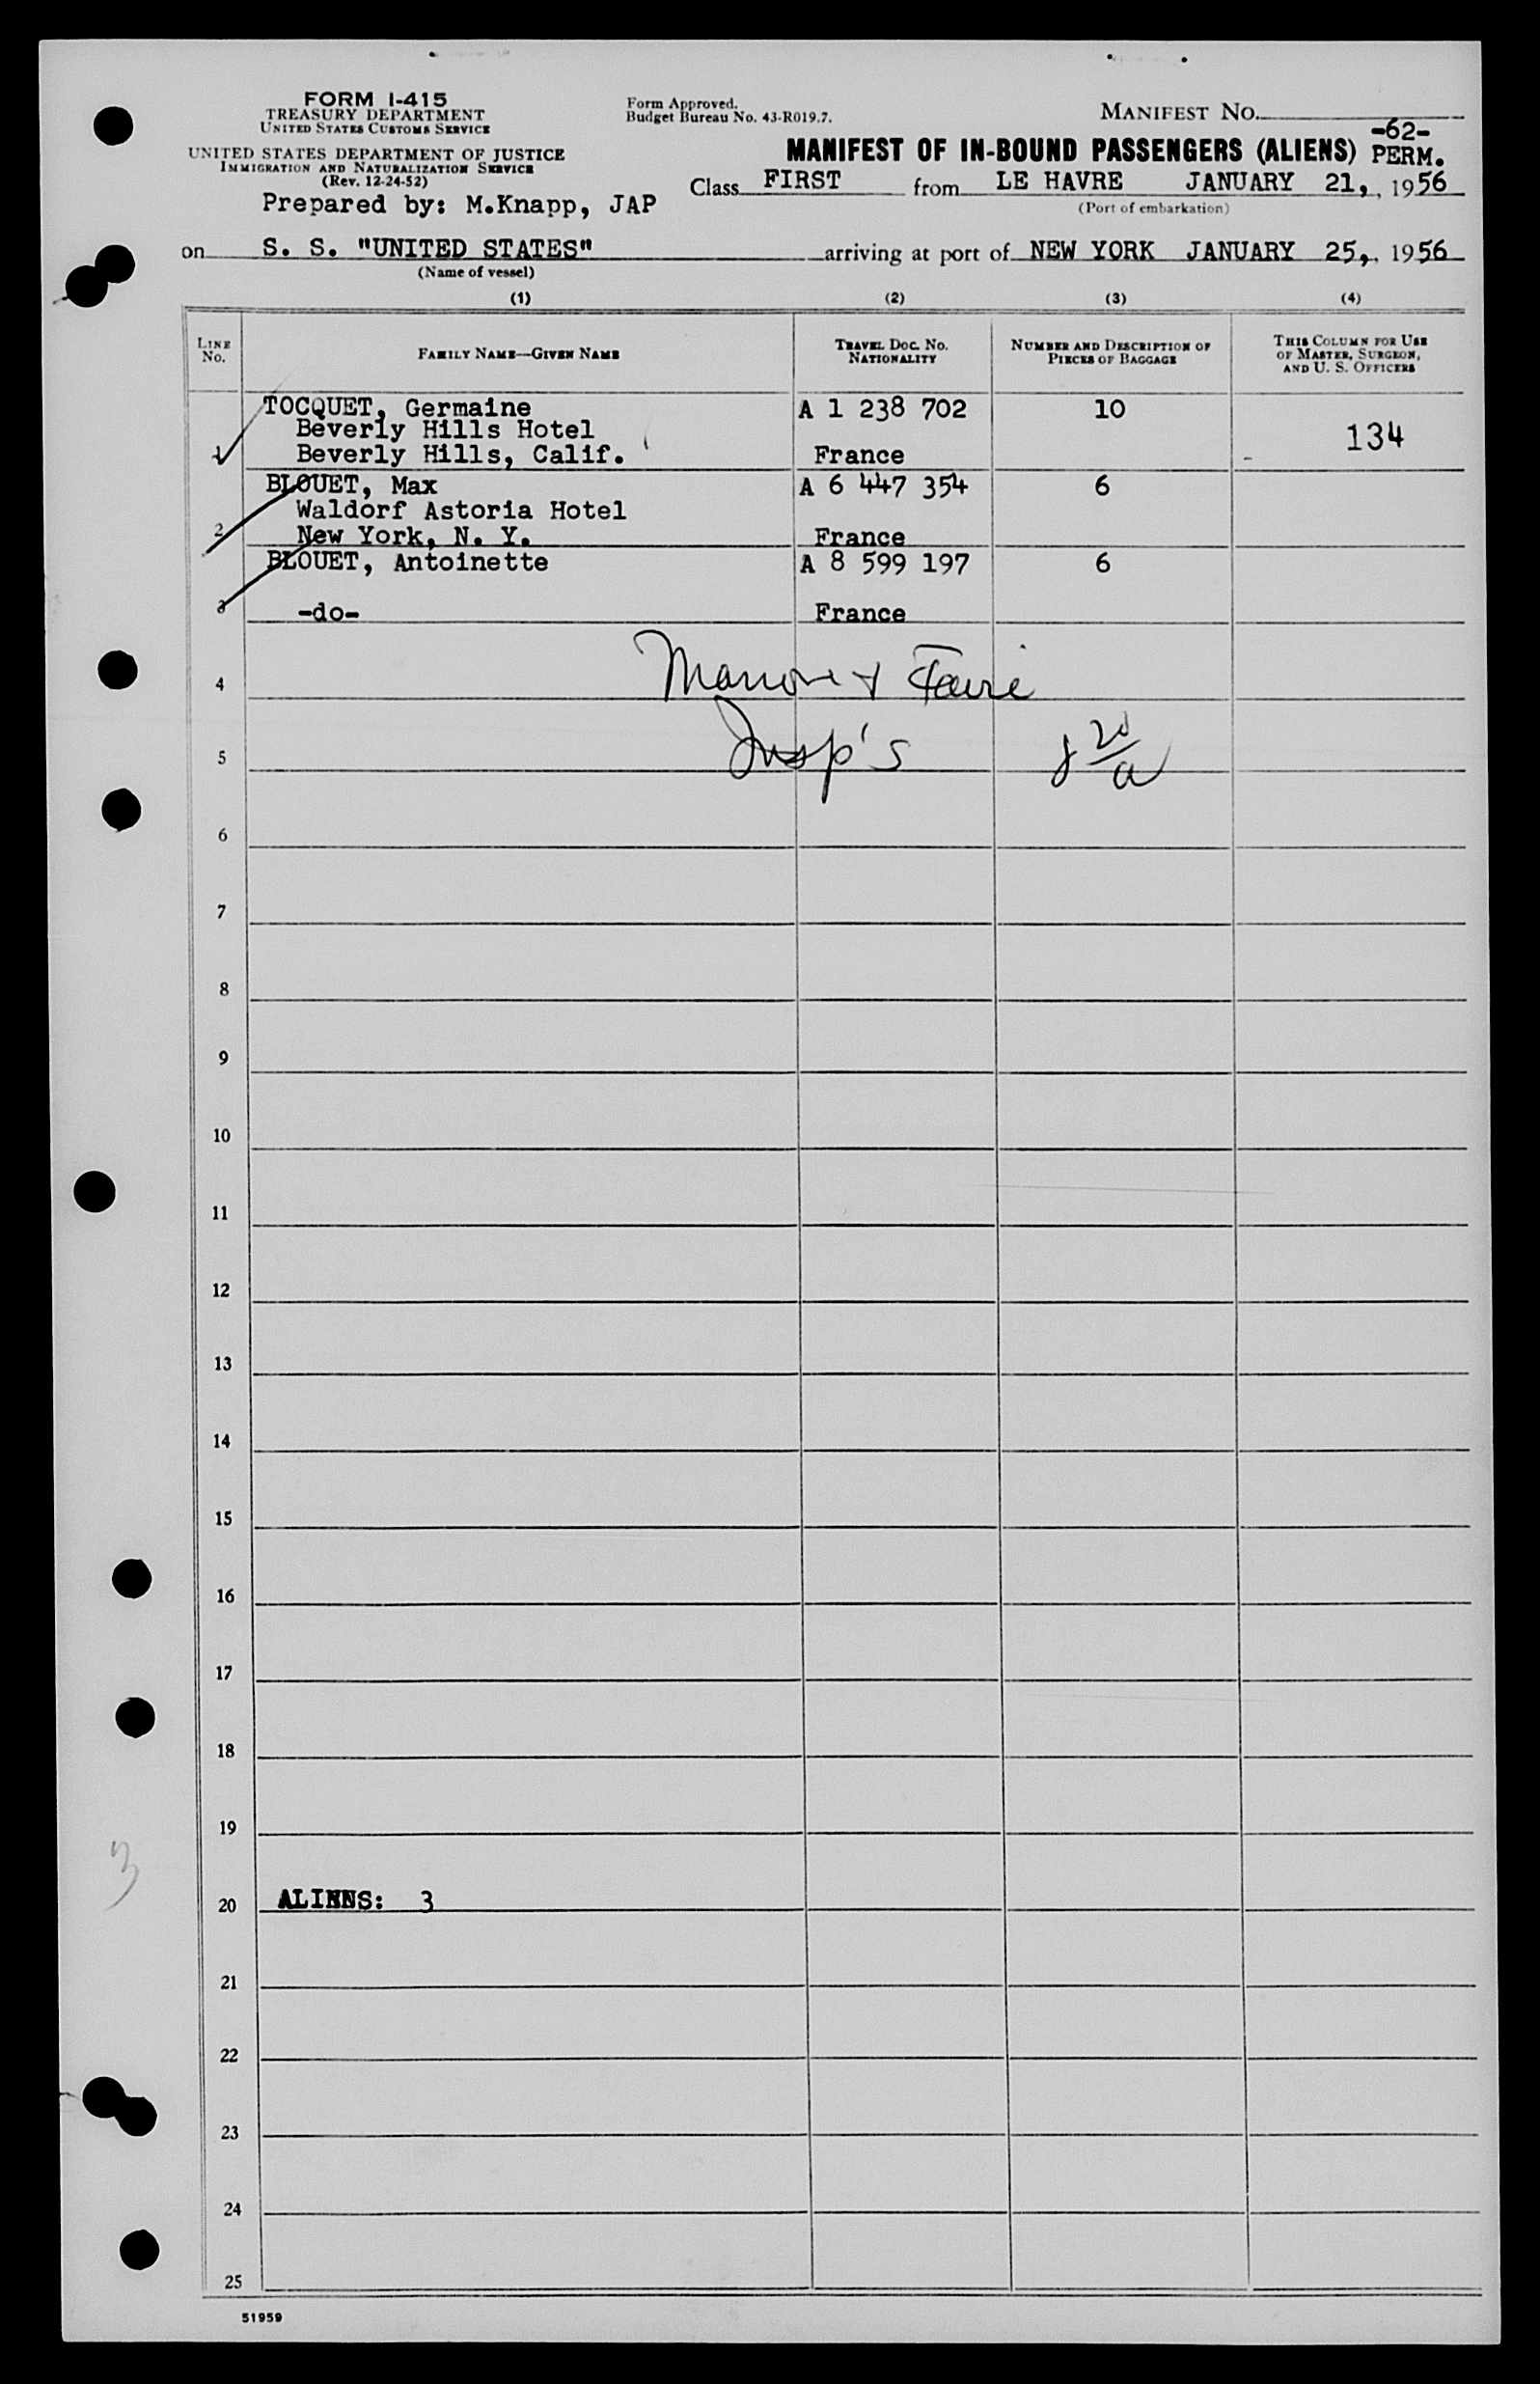 FORM I-415
TREASURY DEPARTMENT
UNITED STATES CUSTOMS SERVICE
UNITED STATES DEPARTMENT OF JUSTICE
IMMIGRATION AND NATURALIZATION SERVICE
(Rev. 12-24-52)
Prepared by: M.Knapp, JAP
Form Approved.
Budget Bureau No. 43-R019.7.
MANIFEST NO.
-62-
MANIFEST OF IN-BOUND PASSENGERS (ALIENS) PERM.
Class FIRST from LE HAVRE JANUARY 21, , 1956
(Port of embarkation)
on S. S. "UNITED STATES" arriving at port of NEW YORK JANUARY 25, , 1956
(Name of vessel)
(1) (2) (3) (4)
LINE NO. FAMILY NAME—GIVEN NAME TRAVEL DOC. NO. NATIONALITY NUMBER AND DESCRIPTION OF PIECES OF BAGGAGE THIS COLUMN FOR USE OF MASTER, SURGEON, AND U. S. OFFICERS
TOCQUET, Germaine A 1 238 702 10
Beverly Hills Hotel 134
1 Beverly Hills, Calif. France
BLOUET, Max A 6 447 354 6
Waldorf Astoria Hotel
2 New York, N. Y. France
BLOUET, Antoinette A 8 599 197 6
3 -do- France
4
5 Insp's
6
7
8
9
10
11
12
13
14
15
16
17
18
19
3
20 ALIENS: 3
21
22
23
24
25
51959